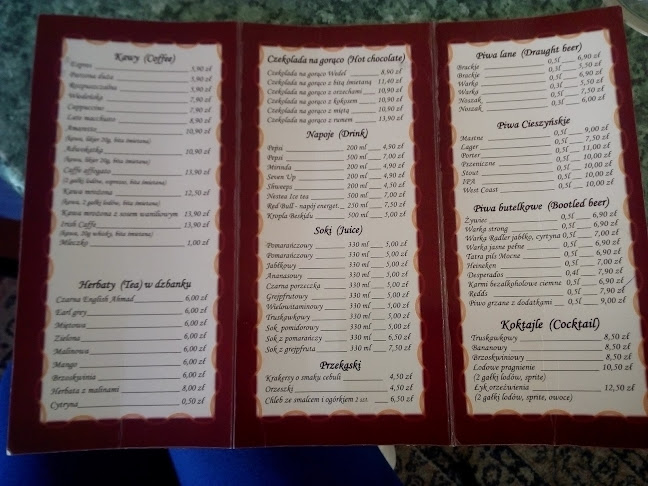 Kawy (Coffee)
Expres 5,90 zł
Parzona duża 5,90 zł
Rozpuszczalna 5,90 zł
Wiedeńska 7,90 zł
Cappuccino 7,90 zł
Late macchiato 8,90 zł
Amaretto 10,90 zł
(kawa, likier 20g, bita śmietana)
Adwokatka 10,90 zł
(kawa, likier 20g, bita śmietana)
Caffe affogato 13,90 zł
(2 gałki lodów, espresso, bita śmietana)
Kawa mrożona 12,50 zł
(kawa, 2 gałki lodów, bita śmietana)
Kawa mrożona z sosem waniliowym 13,90 zł
Irish Caffe 13,90 zł
(kawa, 20g whisky, bita śmietana)
Mleczko 1,00 zł
Herbaty (Tea) w dzbanku
Czarna English Ahmad 6,00 zł
Earl grey 6,00 zł
Miętowa 6,00 zł
Zielona 6,00 zł
Malinowa 6,00 zł
Mango 6,00 zł
Brzoskwinia 6,00 zł
Herbata z malinami 8,00 zł
Cytryna 0,50 zł
Czekolada na gorąco (Hot chocolate)
Czekolada na gorąco Wedel 8,90 zł
Czekolada na gorąco z bitą śmietaną 11,40 zł
Czekolada na gorąco z orzechami 10,90 zł
Czekolada na gorąco z kokosem 10,90 zł
Czekolada na gorąco z miętą 10,90 zł
Czekolada na gorąco z rumem 13,90 zł
Napoje (Drink)
Pepsi 200 ml 4,90 zł
Pepsi 500 ml 7,00 zł
Mirinda 200 ml 4,90 zł
Seven Up 200 ml 4,90 zł
Shweeps 200 ml 4,50 zł
Nestea Ice tea 500 ml 7,00 zł
Red Bull - napój energet. 250 ml 7,50 zł
Kropla Beskidu 500 ml 5,00 zł
Soki (Juice)
Pomarańczowy 330 ml 5,00 zł
Pomarańczowy 330 ml 5,00 zł
Jabłkowy 330 ml 5,00 zł
Ananasowy 330 ml 5,00 zł
Czarna porzeczka 330 ml 5,00 zł
Grejpfrutowy 330 ml 5,00 zł
Wielowitaminowy 330 ml 5,00 zł
Truskawkowy 330 ml 5,00 zł
Sok pomidorowy 330 ml 5,00 zł
Sok z pomarańczy 330 ml 6,50 zł
Sok z grejpfruta 330 ml 7,50 zł
Przekąski
Krakersy o smaku cebuli 4,50 zł
Orzeszki 4,50 zł
Chleb ze smalcem i ogórkiem 2 szt. 6,50 zł
Piwa lane (Draught beer)
Brackie 0,5l 6,90 zł
Brackie 5,50 zł
Warka 0,5l 6,90 zł
Warka 5,50 zł
Noszak 0,5l 7,50 zł
Noszak 6,00 zł
Piwa Cieszyńskie
Mastne 0,5l 9,00 zł
Lager 0,5l 7,50 zł
Porter 0,5l 11,00 zł
Pszeniczne 0,5l 10,00 zł
Stout 0,5l 10,00 zł
IPA 0,5l 10,00 zł
West Coast 0,5l 10,00 zł
Piwa butelkowe (Bootled beer)
Żywiec 0,5l 6,90 zł
Warka strong 0,5l 6,90 zł
Warka Radler jabłko, cyrtyna 0,5l 7,00 zł
Warka jasne pełne 0,5l 6,90 zł
Tatra pils Mocne 0,5l 6,90 zł
Heineken 0,5l 7,00 zł
Desperados 0,4l 7,90 zł
Karmi bezalkoholowe ciemne 0,5l 6,90 zł
Redds 0,5l 7,90 zł
Piwo grzane z dodatkami 0,5l 9,00 zł
Koktajle (Cocktail)
Truskawkowy 8,50 zł
Bananowy 8,50 zł
Brzoskwiniowy 8,50 zł
Lodowe pragnienie 10,50 zł
(2 gałki lodów, sprite)
Łyk orzeźwienia 12,50 zł
(2 gałki lodów, sprite, owoce)